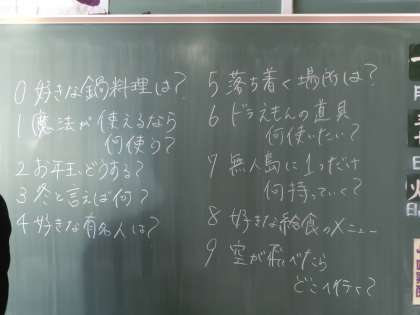 0 好きな鍋料理は?
1 魔法が使えるなら
何使う?
2 お年玉どうする?
3 冬と言えば何?
4 好きな有名人は?
5 落ち着く場所は?
6 ドラえもんの道具
何使いたい?
7 無人島に1つだけ
何持っていく?
8 好きな給食のメニュー
9 空が飛べたら
どこへ行く?
月
日